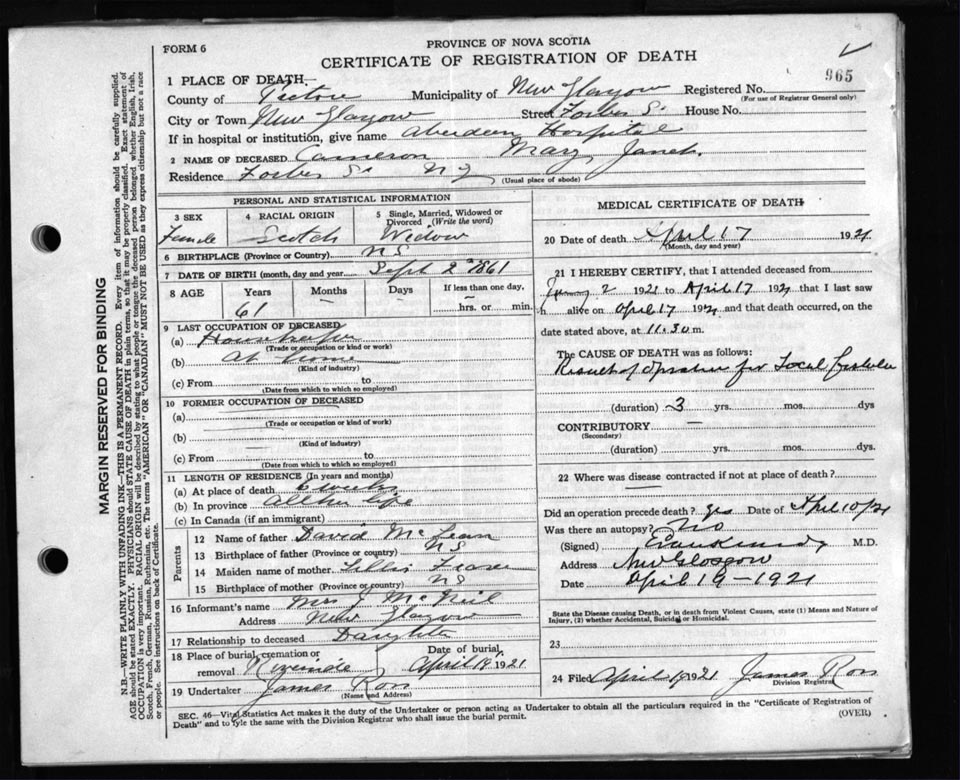 FORM 6
PROVINCE OF NOVA SCOTIA
CERTIFICATE OF REGISTRATION OF DEATH
965
1 PLACE OF DEATH—
County of Pictou Municipality of New Glasgow Registered No.
(For use of Registrar General only)
City or Town New Glasgow Street Forbes St House No.
If in hospital or institution, give name Aberdeen Hospital
2 NAME OF DECEASED Cameron Mary Janet.
Residence Forbes St N G
(Usual place of abode)
PERSONAL AND STATISTICAL INFORMATION
3 SEX Female
4 RACIAL ORIGIN Scotch
5 Single, Married, Widowed or Divorced (Write the word) Widow
6 BIRTHPLACE (Province or Country) NS
7 DATE OF BIRTH (month, day and year) Sept 2 1861
8 AGE Years 61 Months — Days — If less than one day, hrs. or min.
9 LAST OCCUPATION OF DECEASED
(a) Housekeeper
(Trade or occupation or kind of work)
(b) at home
(Kind of industry)
(c) From to
(Date from which to which so employed)
10 FORMER OCCUPATION OF DECEASED
(a)
(Trade or occupation or kind of work)
(b) —
(Kind of industry)
(c) From to
(Date from which to which so employed)
11 LENGTH OF RESIDENCE (In years and months)
(a) At place of death 6 weeks
(b) In province all her life
(c) In Canada (if an immigrant)
Parents
12 Name of father David McLean
13 Birthplace of father (Province or country) NS
14 Maiden name of mother Fraser
15 Birthplace of mother (Province or country) NS
16 Informant's name Mrs J McNeil
Address New Glasgow
17 Relationship to deceased Daughter
18 Place of burial, cremation or removal Date of burial, April 19, 1921
19 Undertaker James Ross
(Name and Address)
MEDICAL CERTIFICATE OF DEATH
20 Date of death April 17 1921
(Month, day and year)
21 I HEREBY CERTIFY, that I attended deceased from
2 1921 to April 17 1921 that I last saw
h alive on April 17 1921 and that death occurred, on the
date stated above, at 11.30 m.
The CAUSE OF DEATH was as follows:
Result of Operation for Fistula
(duration) 3 yrs. mos. dys
CONTRIBUTORY —
(Secondary)
(duration) yrs. mos. dys
22 Where was disease contracted if not at place of death?
—
Did an operation precede death? yes Date of April 10/21
Was there an autopsy? No
(Signed) M.D.
Address New Glasgow
Date April 19 – 1921
State the Disease causing Death, or in death from Violent Causes, state (1) Means and Nature of
Injury, (2) whether Accidental, Suicidal or Homicidal.
23
24 Filed April 1921 James Ross
Division Registrar
SEC. 46—Vital Statistics Act makes it the duty of the Undertaker or person acting as Undertaker to obtain all the particulars required in the "Certificate of Registration of
Death" and to file the same with the Division Registrar who shall issue the burial permit.
(OVER)
MARGIN RESERVED FOR BINDING
N.B.—WRITE PLAINLY WITH UNFADING INK—THIS IS A PERMANENT RECORD. Every item of information should be carefully supplied.
AGE should be stated EXACTLY. PHYSICIANS should STATE CAUSE OF DEATH in plain terms, so that it may be properly classified. Exact statement of
OCCUPATION is very important. RACIAL ORIGIN will be described by stating to what people or tongue the deceased person belonged whether English, Irish,
Scotch, French, German, Russian, Ruthenian, etc. The terms "AMERICAN" OR "CANADIAN" MUST NOT BE USED as they express citizenship but not a race
or people. See instructions on back of Certificate.